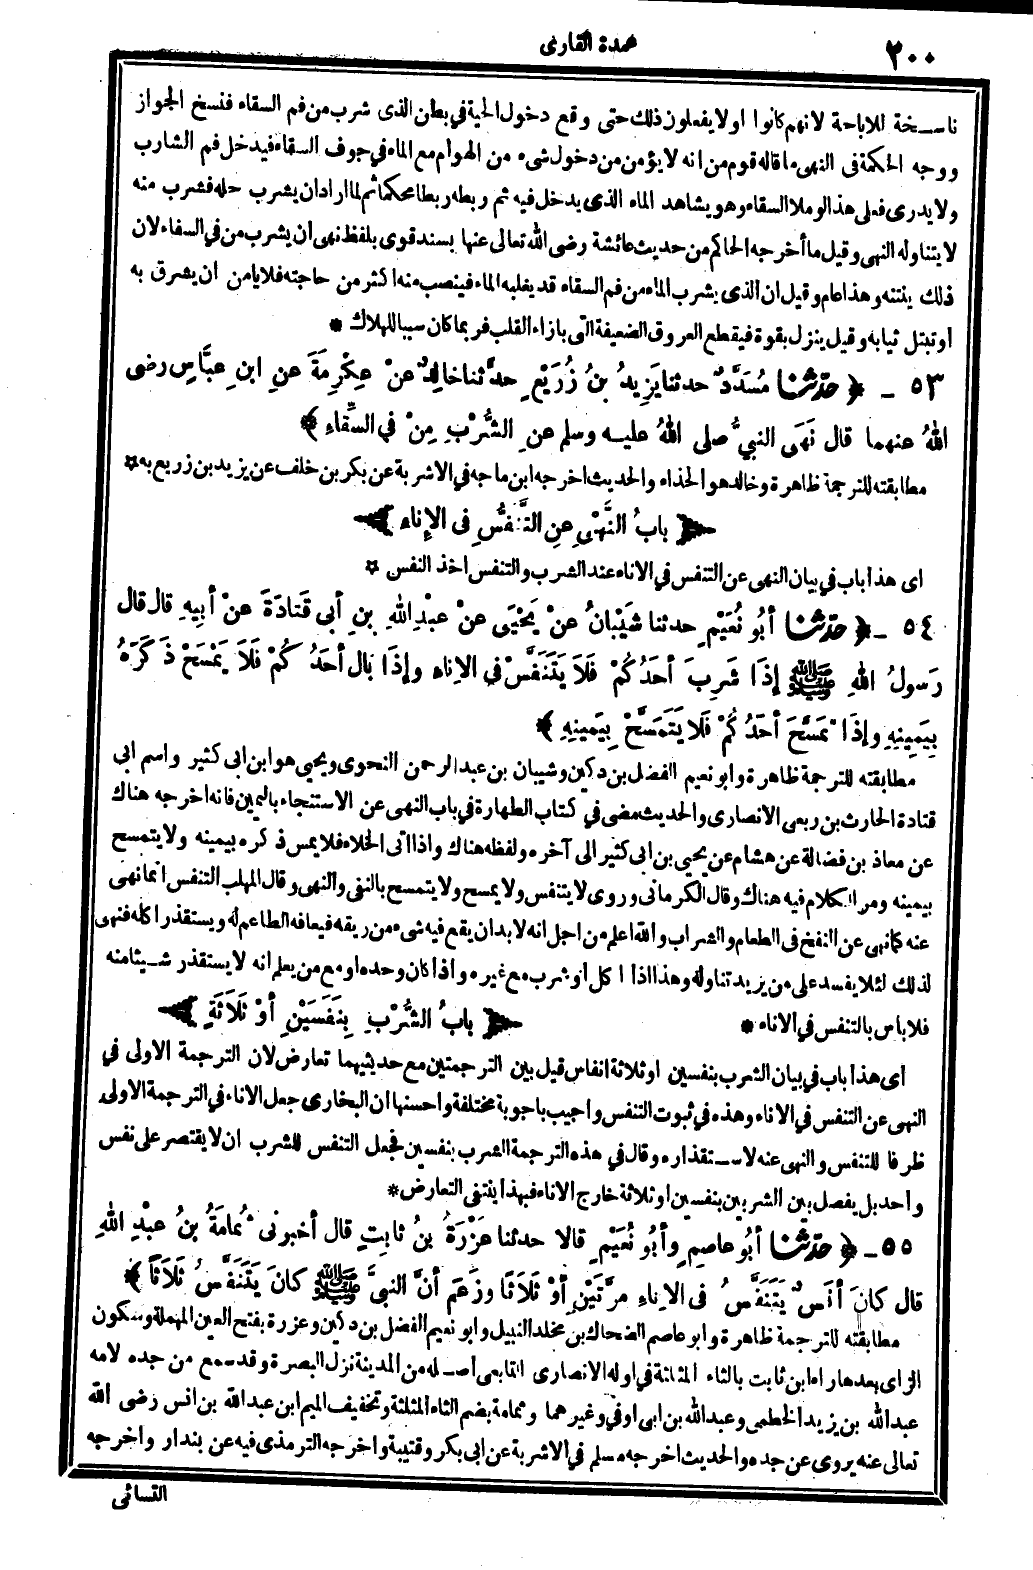 ٢٠٠
عمدة القارى
ناسخة للاباحة لانهم كانوا اولا يفعلون ذلك حتى وقع دخول الحية في بطن الذى شرب من فم السقاء فنسخ الجواز
ووجه الحكمة فى النهى ما قاله قوم من انه لا يؤمن من دخول شىء من الهوام مع الماء في جوف السقاء فيدخل فم الشارب
ولا يدرى فعلى هذا لو ملا السقاء وهو يشاهد الماء الذى يدخل فيه ثم ربطه ربطا محكما ثم لما اراد ان يشرب حله فشرب منه
لا يتناوله النهى وقيل ما أخرجه الحاكم من حديث عائشة رضى الله تعالى عنها بسند قوى بلفظ نهى ان يشرب من في السقاء لان
ذلك ينتنه وهذا عام وقيل ان الذى يشرب الماء من فم السقاء قد يغلبه الماء فينصب منه اكثر من حاجته فلا يامن ان يشرق به
او تبتل ثيابه وقيل ينزل بقوة فيقطع العروق الضعيفة التى بازاء القلب فربما كان سببا للهلاك *
٥٣ - ﴿ حدّثنا مُسَدَّدٌ حدثنا يَزِيدُ بنُ زُرَيْعٍ حدَّثنا خالِدٌ عنْ عِكْرِمَةَ عنِ ابنِ عبَّاسٍ رضى
اللهُ عنهما قال نَهَى النبيُّ صلى اللهُ عليه وسلم عنِ الشُّرْبِ مِنْ في السِّقاءِ ﴾
مطابقته للترجمة ظاهرة وخالد هو الحذاء والحديث اخرجه ابن ماجه في الاشربة عن بكر بن خلف عن يزيد بن زريع به *
﴿ بابُ النَّهْىِ عنِ التَّنَفُّسِ فى الإِناءِ ﴾
اى هذا باب في بيان النهى عن التنفس في الاناء عند الشرب والتنفس اخذ النفس *
٥٤ - ﴿ حدّثنا أبُو نُعَيْمٍ حدثنا شَيْبانُ عنْ يَحْيَى عنْ عبْدِ اللهِ بنِ أبى قَتادَةَ عنْ أبِيهِ قال قال
رَسولُ اللهِ ﷺ إذَا شَرِبَ أحَدُكُمْ فَلَا يَتَنَفَّسْ في الاِناءِ وإذَا بال أحَدُكُمْ فَلَا يَمْسَحْ ذَكَرَهُ
بِيَمِينِهِ وإذَا تَمَسَّحَ أحَدُكُمْ فَلَا يَتَمَسَّحْ بِيَمِينِهِ ﴾
مطابقته للترجمة ظاهرة وابو نعيم الفضل بن دكين وشيبان بن عبد الرحمن النحوى ويحيى هو ابن ابى كثير واسم ابى
قتادة الحارث بن ربعى الانصارى والحديث مضى في كتاب الطهارة في باب النهى عن الاستنجاء باليمين فانه اخرجه هناك
عن معاذ بن فضالة عن هشام عن يحيى بن ابى كثير الى آخره ولفظه هناك واذا اتى الخلاء فلا يمس ذكره بيمينه ولا يتمسح
بيمينه ومر الكلام فيه هناك وقال الكرمانى وروى لا يتنفس ولا يمسح ولا يتمسح بالنفى والنهى وقال المهلب التنفس انما نهى
عنه كما نهى عن النفخ فى الطعام والشراب والله اعلم من اجل انه لا بد ان يقع فيه شىء من ريقه فيعافه الطاعم له ويستقذر اكله فنهى
لذلك لئلا يفسد على من يريد تناوله وهذا اذا اكل او شرب مع غيره واذا كان وحده او مع من يعلم انه لا يستقذر شيئا منه
فلا باس بالتنفس في الاناء *
﴿ بابُ الشُّرْبِ بِنَفَسَيْنِ أوْ ثَلَاثَةٍ ﴾
اى هذا باب في بيان الشرب بنفسين او ثلاثة انفاس قيل بين الترجمتين مع حديثيهما تعارض لان الترجمة الاولى في
النهى عن التنفس في الاناء وهذه في ثبوت التنفس واجيب باجوبة مختلفة واحسنها ان البخارى جعل الاناء في الترجمة الاولى
ظرفا للتنفس والنهى عنه لاستقذاره وقال في هذه الترجمة الشرب بنفسين فجعل التنفس للشرب ان لا يقتصر على نفس
واحد بل يفصل بين الشربين بنفسين او ثلاثة خارج الاناء فبهذا ينتفى التعارض *
٥٥ - ﴿ حدّثنا أبُو عاصِمٍ وأبُو نُعَيْمٍ قالا حدثنا عَزْرَةُ بنُ ثابِتٍ قال أخبرنى ثُمامَةُ بنُ عبْدِ اللهِ
قال كانَ أنَسٌ يَتَنَفَّسُ فى الإناءِ مرَّتَيْنِ أوْ ثَلَاثًا وزَعَمَ أنَّ النبيَّ ﷺ كانَ يَتَنَفَّسُ ثَلَاثًا ﴾
مطابقته للترجمة ظاهرة وابو عاصم الضحاك بن مخلد النبيل وابو نعيم الفضل بن دكين وعزرة بفتح العين المهملة وسكون
الزاى بعدها راء ابن ثابت بالثاء المثلثة في اوله الانصارى التابعى أصله من المدينة نزل البصرة وقد سمع من جده لامه
عبد الله بن يزيد الخطمى وعبد الله بن ابى اوفي وغيرهما وثمامة بضم الثاء المثلثة وتخفيف الميم ابن عبد الله بن انس رضى الله
تعالى عنه يروى عن جده والحديث اخرجه مسلم في الاشربة عن ابى بكر وقتيبة واخرجه الترمذى فيه عن بندار واخرجه
النسائى